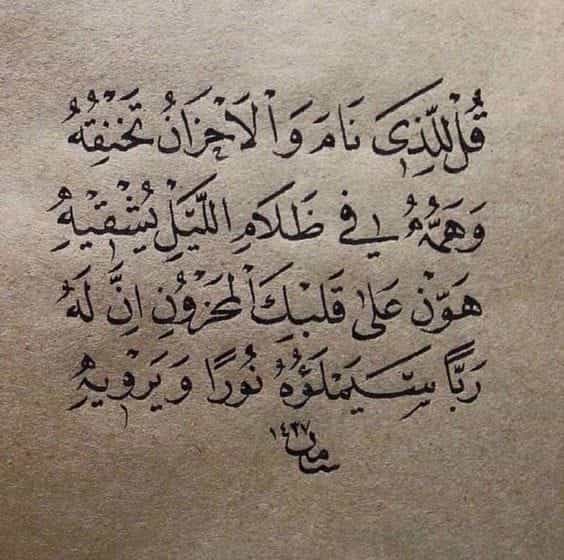 قُلْ لِلَّذِي نَامَ وَالْأَحْزَانُ تَخْنُقُهُ
وَهَمُّهُ فِي ظَلَامِ اللَّيْلِ يُشْقِيْهِ
هَوِّنْ عَلَى قَلْبِكَ الْمَحْزُوْنِ إِنَّ لَهُ
رَبًّا سَيَمْلَؤُهُ نُورًا وَيَرْوِيهِ
١٤٣٧